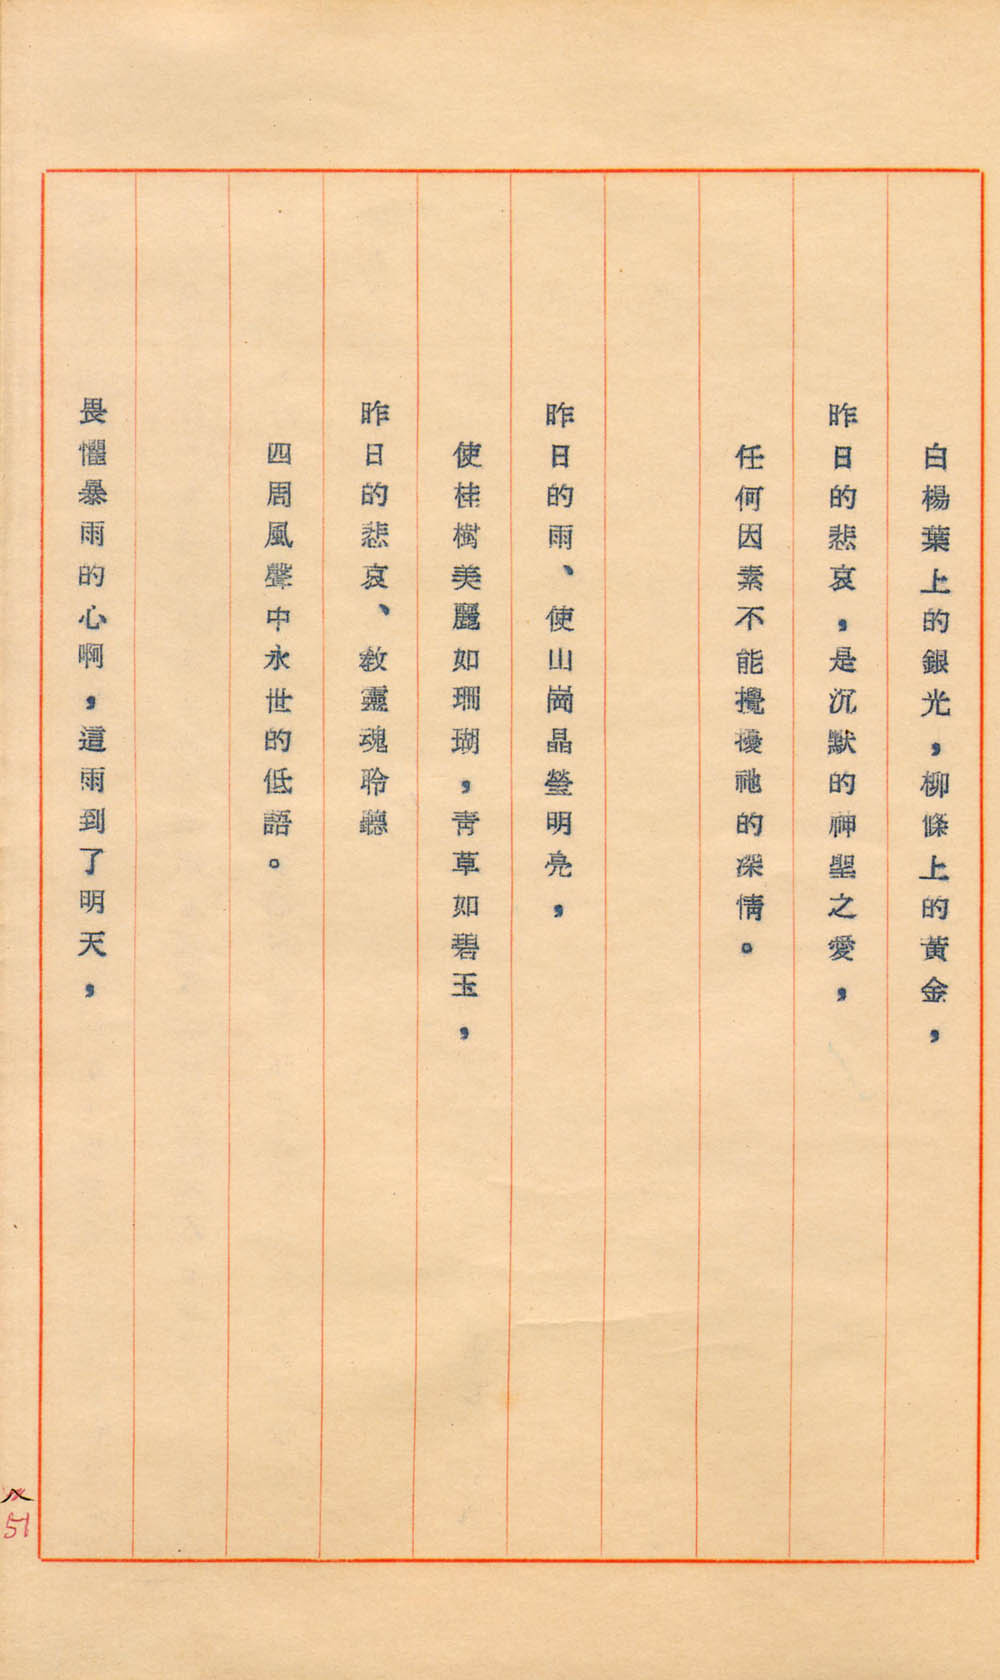 白楊葉上的銀光，柳條上的黃金，
昨日的悲哀，是沉默的神聖之愛，
任何因素不能攪擾祂的深情。
昨日的雨、使山崗晶瑩明亮，
使桂樹美麗如珊瑚，青草如碧玉，
昨日的悲哀、教靈魂聆聽
四周風聲中永世的低語。
畏懼暴雨的心啊，這雨到了明天，
51